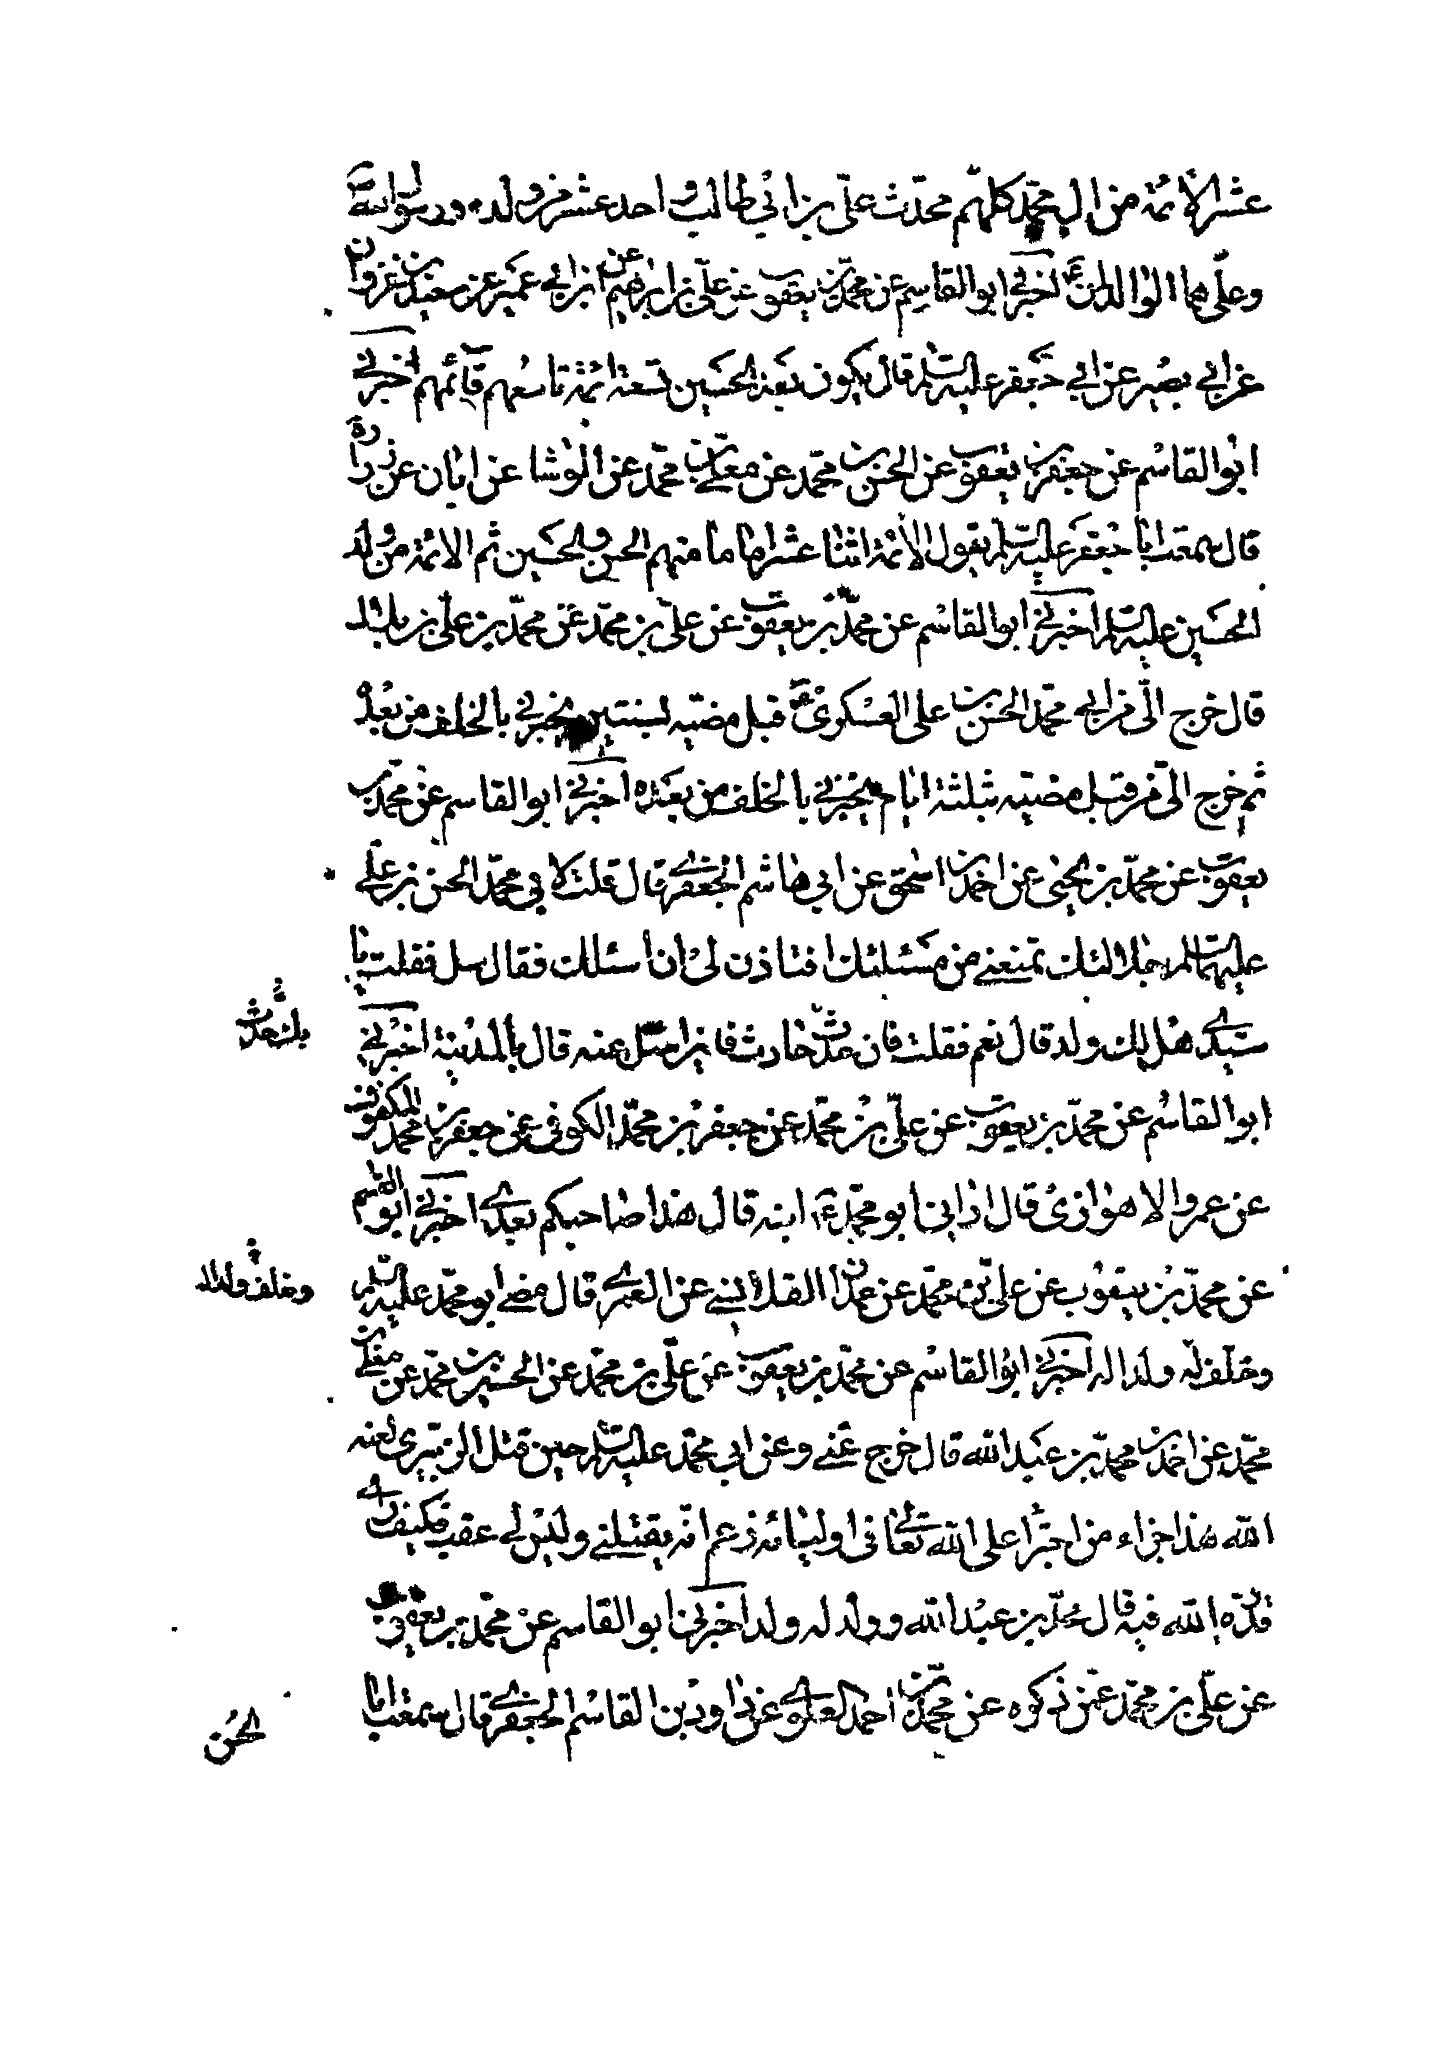 عشر الأئمة من ال محمد كلهم محدث علي بن ابي طالب واحد عشر من ولده ورسول الله
وعلي هما الوالدان ع اخبرني ابو القاسم عن محمد بن يعقوب عن علي بن ابراهيم عن ابن ابي عمير عن سعيد بن غزوان
عن ابي بصير عن ابي جعفر عليه السلم قال يكون بعد الحسين تسعة ائمة تاسعهم قائمهم اخبرني
ابو القاسم عن جعفر بن يعقوب عن الحسن بن محمد عن معلى بن محمد عن الوشا عن ابان عن زرارة
قال سمعت ابا جعفر عليه السلم يقول الأئمة اثنا عشر اماما منهم الحسن والحسين ثم الائمة من ولد
الحسين عليه السلم اخبرني ابو القاسم عن محمد بن يعقوب عن علي بن محمد عن محمد بن علي بن بلال
قال خرج الي من ابي محمد الحسن بن علي العسكري ع قبل مضيه بسنتين يخبرني بالخلف من بعده
ثم خرج الي من قبل مضيه بثلثة ايام يخبرني بالخلف من بعده اخبرني ابو القاسم عن محمد بن
يعقوب عن محمد بن يحيى عن احمد بن اسحق عن ابي هاشم الجعفري قال قلت لابي محمد الحسن بن علي
عليهما السلم جلالتك تمنعني من مسئلتك افتاذن لي ان اسئلك فقال سل فقلت يا
سيدي هل لك ولد قال نعم فقلت فان حدث حادث فاين اسئل عنه قال بالمدينة اخبرني
بك حدث
ابو القاسم عن محمد بن يعقوب عن علي بن محمد عن جعفر بن محمد الكوفي عن جعفر بن محمد المكفوف
عن عمرو الاهوازي قال اراني ابو محمد ع ابنه قال هذا صاحبكم بعدي اخبرني ابو القاسم
عن محمد بن يعقوب عن علي بن محمد عن حمدان القلانسي عن العمري قال مضى ابو محمد عليه السلم
وخلف ولدا له
وخلف له ولدا له اخبرني ابو القاسم عن محمد بن يعقوب عن علي بن محمد عن الحسين بن محمد عن معلى بن
محمد عن احمد بن محمد بن عبد الله قال خرج عني وعن ابي محمد عليه السلم حين قتل الزبيري لعنه
الله هذا جزاء من اجترا على الله تعالى في اوليائه زعم انه يقتلني وليس لي عقب فكيف راى
قدرة الله فيه قال محمد بن عبد الله وولد له ولد اخبرني ابو القاسم عن محمد بن يعقوب
عن علي بن محمد عمن ذكره عن محمد بن احمد العلوي عن داود بن القاسم الجعفري قال سمعت ابا
الحسن